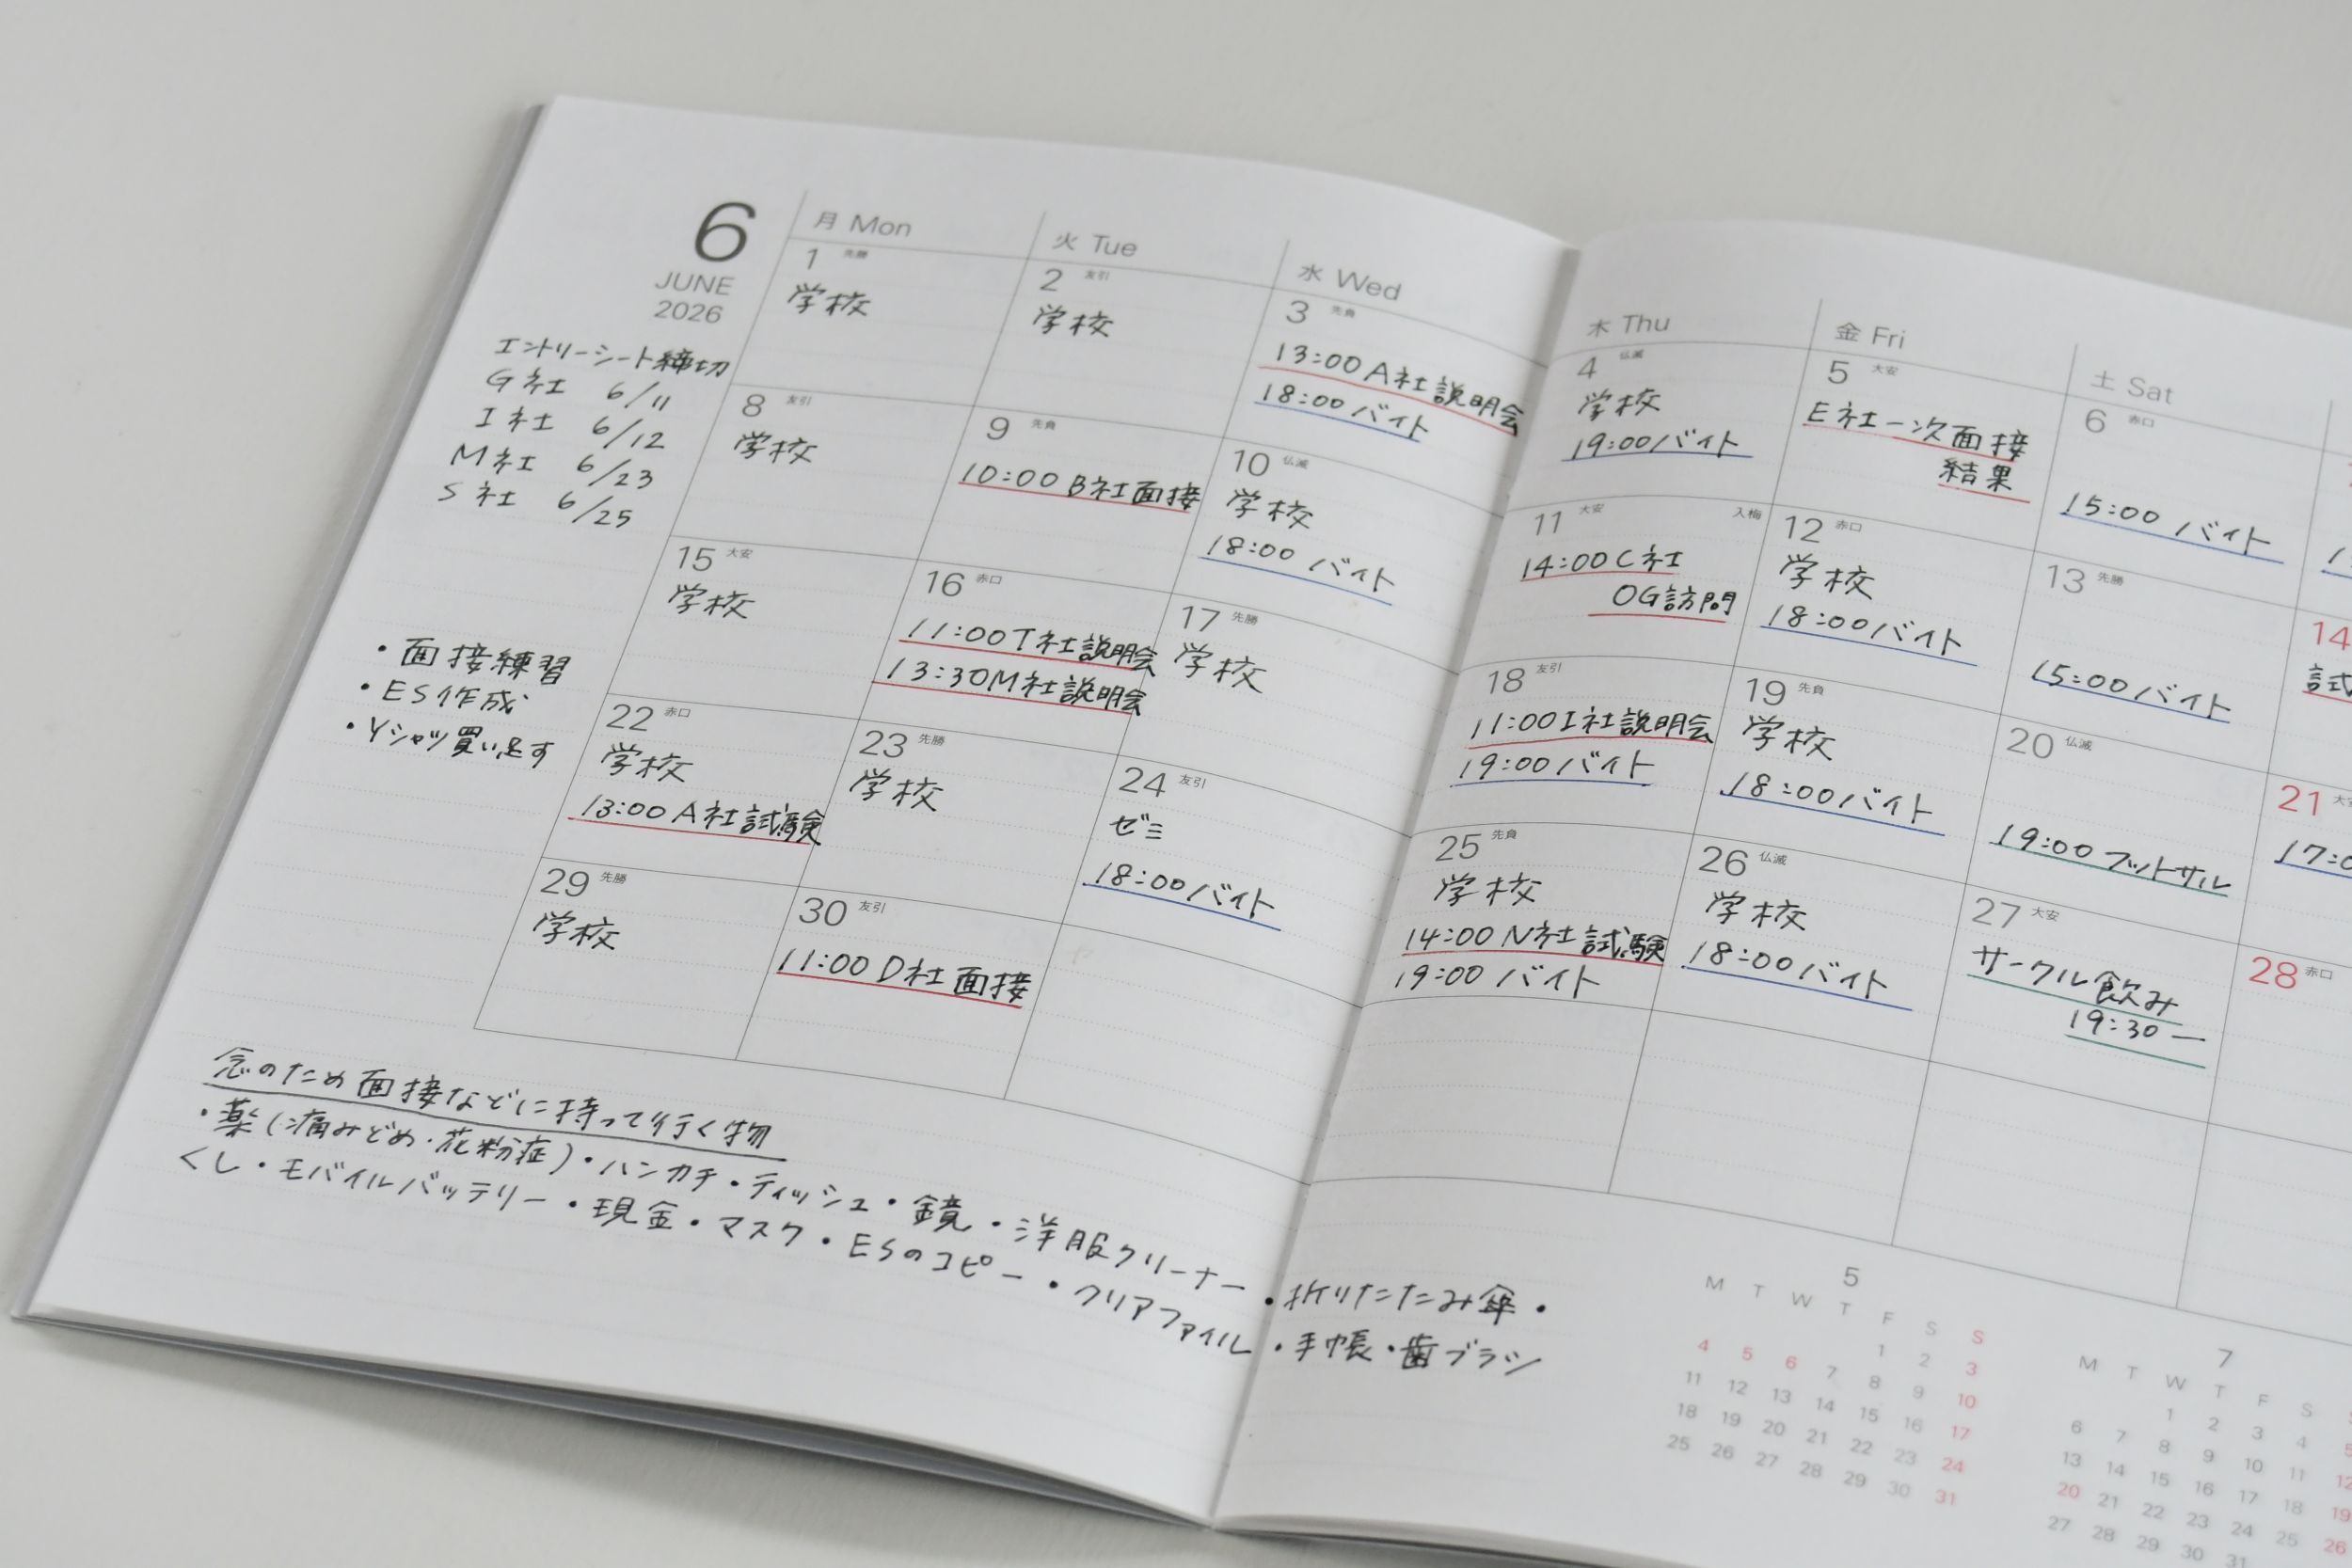 6
JUNE
2026
エントリーシート締切
G社 6/11
I社 6/12
M社 6/23
S社 6/25
・面接練習
・ES作成
・Yシャツ買い足す
月 Mon
火 Tue
水 Wed
木 Thu
金 Fri
土 Sat
1 先勝
学校
2 友引
学校
3 先負
13:00 A社説明会
18:00 バイト
4 仏滅
学校
19:00 バイト
5 大安
E社一次面接
結果
6 赤口
15:00 バイト
8 友引
学校
9 先負
10:00 B社面接
10 仏滅
学校
18:00 バイト
11 大安 入梅
14:00 C社
OG訪問
12 赤口
学校
18:00 バイト
13 先勝
15:00 バイト
14
試
15 大安
学校
16 赤口
11:00 T社説明会
13:30 M社説明会
17 先勝
学校
18 友引
11:00 I社説明会
19:00 バイト
19 先負
学校
18:00 バイト
20 仏滅
19:00 フットサル
21 大安
17:0
22 赤口
学校
13:00 A社試験
23 先勝
学校
24 友引
ゼミ
18:00 バイト
25 先負
学校
14:00 N社試験
19:00 バイト
26 仏滅
学校
18:00 バイト
27 大安
サークル飲み
19:30ー
28 赤口
29 先勝
学校
30 友引
11:00 D社面接
念のため面接などに持って行く物
・薬(痛みどめ・花粉症)・ハンカチ・ティッシュ・鏡・洋服クリーナー・折りたたみ傘・
くし・モバイルバッテリー・現金・マスク・ESのコピー・クリアファイル・手帳・歯ブラシ
5
M T W T F S S
1 2 3
4 5 6 7 8 9 10
11 12 13 14 15 16 17
18 19 20 21 22 23 24
25 26 27 28 29 30 31
7
M T W T F S
1 2 3 4 5
6 7 8 9 10 11 12
13 14 15 16 17 18 19
20 21 22 23 24 25 26
27 28 29 30 31